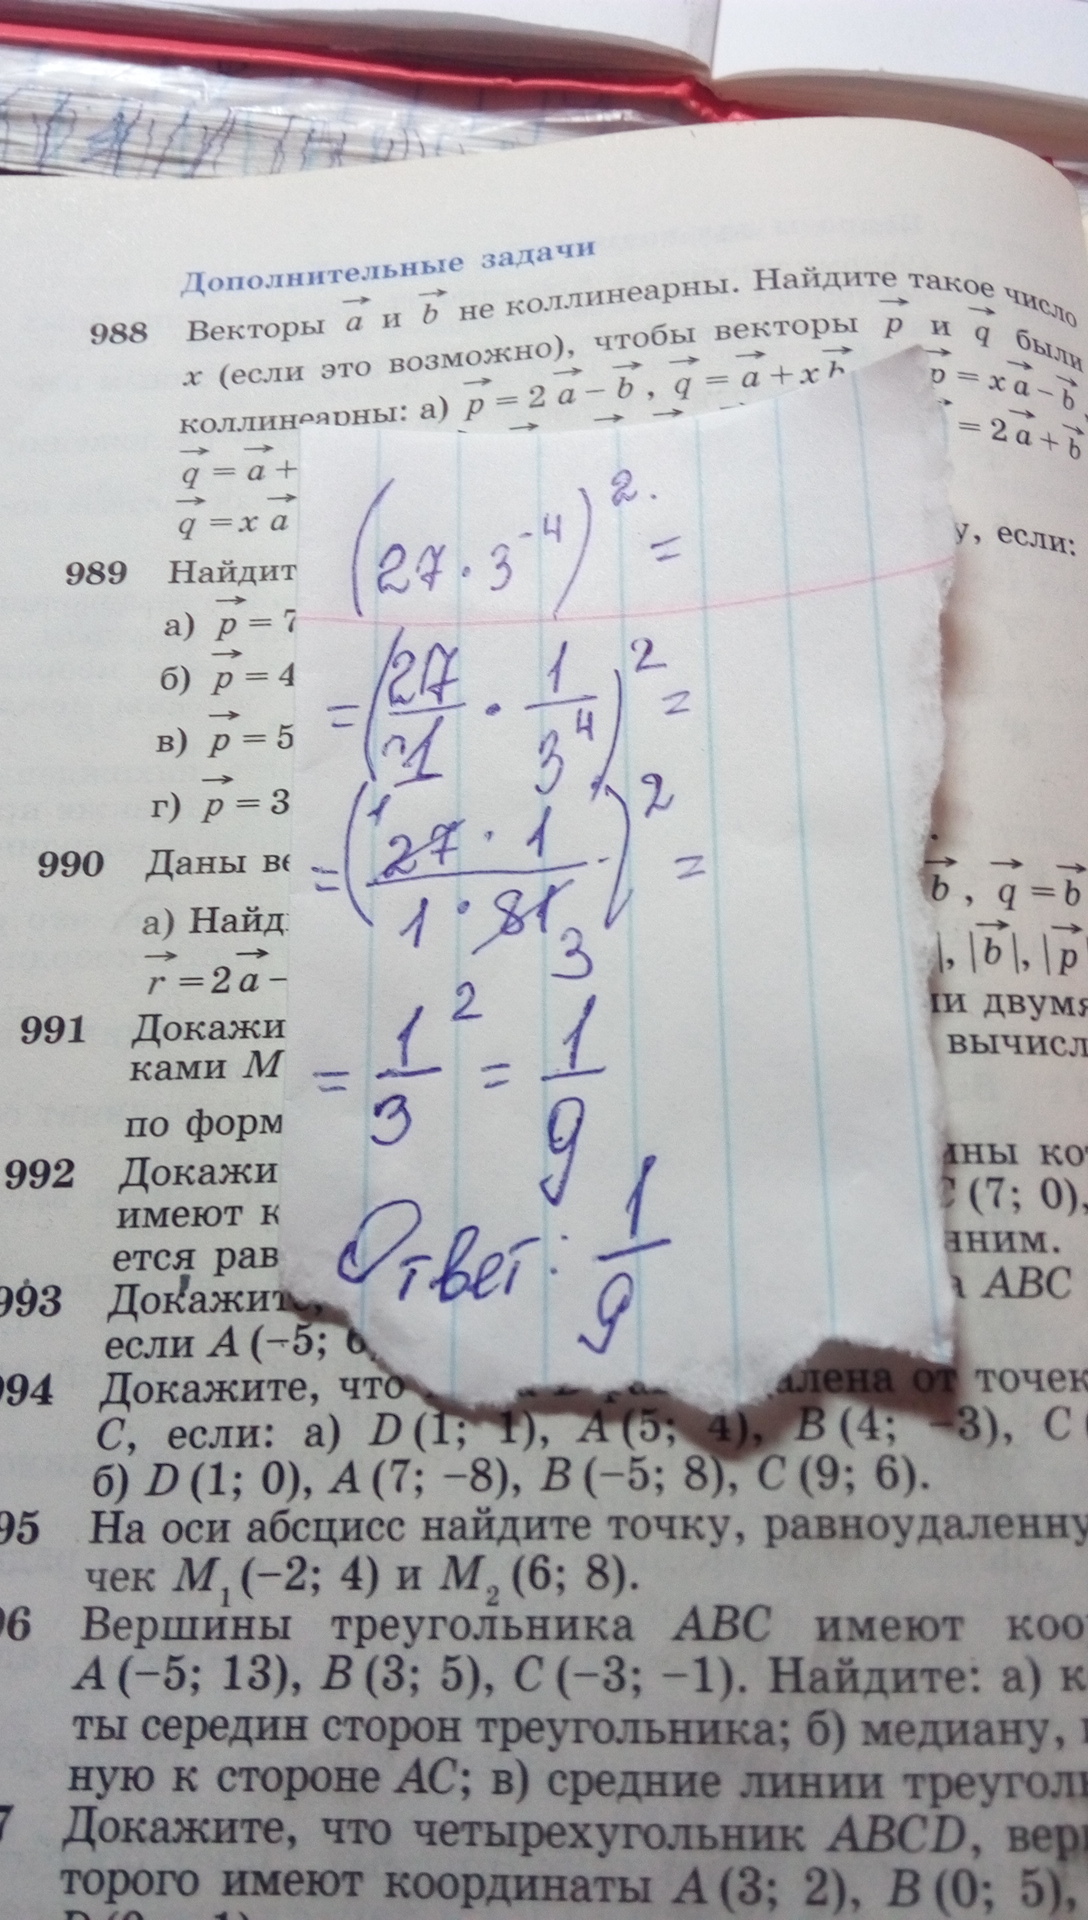 Дополнительные задачи
988 Векторы a⃗ и b⃗ не коллинеарны. Найдите такое число
x (если это возможно), чтобы векторы p⃗ и q⃗ были
коллинеарны: а) p⃗ = 2a⃗ − b⃗, q⃗ = a⃗ + xb⃗ p⃗ = xa⃗ − b⃗,
q⃗ = a⃗ + = 2a⃗ + b⃗
q⃗ = xa⃗
у, если:
989 Найдит
а) p⃗ = 7
б) p⃗ = 4
в) p⃗ = 5
г) p⃗ = 3
990 Даны ве b⃗, q⃗ = b⃗
а) Найд |, |b⃗|, |p⃗|
r⃗ = 2a⃗ −
ли двумя
991 Докажи вычисл
ками M
по форм
992 Докажи ины ко
имеют к C (7; 0),
ется рав нним.
993 Докажите, а ABC
если A (−5; 6
994 Докажите, что алена от точек
C, если: а) D (1; 1), A (5; 4), B (4; −3), C (
б) D (1; 0), A (7; −8), B (−5; 8), C (9; 6).
95 На оси абсцисс найдите точку, равноудаленну
чек M₁ (−2; 4) и M₂ (6; 8).
96 Вершины треугольника ABC имеют коо
A (−5; 13), B (3; 5), C (−3; −1). Найдите: а) к
ты середин сторон треугольника; б) медиану,
ную к стороне AC; в) средние линии треуголь
7 Докажите, что четырехугольник ABCD, верш
торого имеют координаты A (3; 2), B (0; 5),
(27 · 3⁻⁴)². =
= (27/1 · 1/3⁴)² =
= (27 · 1 / 1 · 81)² =
1
3
= 1²/3 = 1/9
Ответ: 1/9